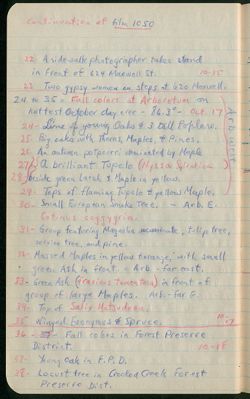 Continuation of film 1050
22. A side-walk photographer takes stand
in front of 624 Maxwell St. 10-15
23. Two gypsy women on steps at 620 Maxwell.
24 to 35 = Full colors at Arboretum on
hottest October day ever - 86.3° - Oct. 17
24 - Line of young Oaks & 3 Dell Poplars.
25. Big oaks with Thorns, Maples, & Pines.
26. An autumn potpourri dominated by Maple
27. A brilliant Tupelo (Nyssa Silvatica)
28. beside green larch & Maple in yellow.
29. Tops of flaming Tupelo & yellow Maple.
30 - Small European Smoke Tree. - Arb. E.
Cotinus coggygria.
31 - Group featuring Magnolia acuminata, tulip tree,
retinia tree, and pine.
32 - Massed Maples in yellow & orange, with small
green Ash in front - Arb - far east.
33 - Green Ash in front of
group of large Maples. Arb. far E.
34 - Top of Salix Matsudana.
35. Winged Euonymus & Spruce. 10-17
36 - Full colors in Forest Preserve
District. 10-18
37 - Young oak in F.P.D.
38 - Locust tree in Crooked Creek Forest
Preserve Dist.
Arboretum